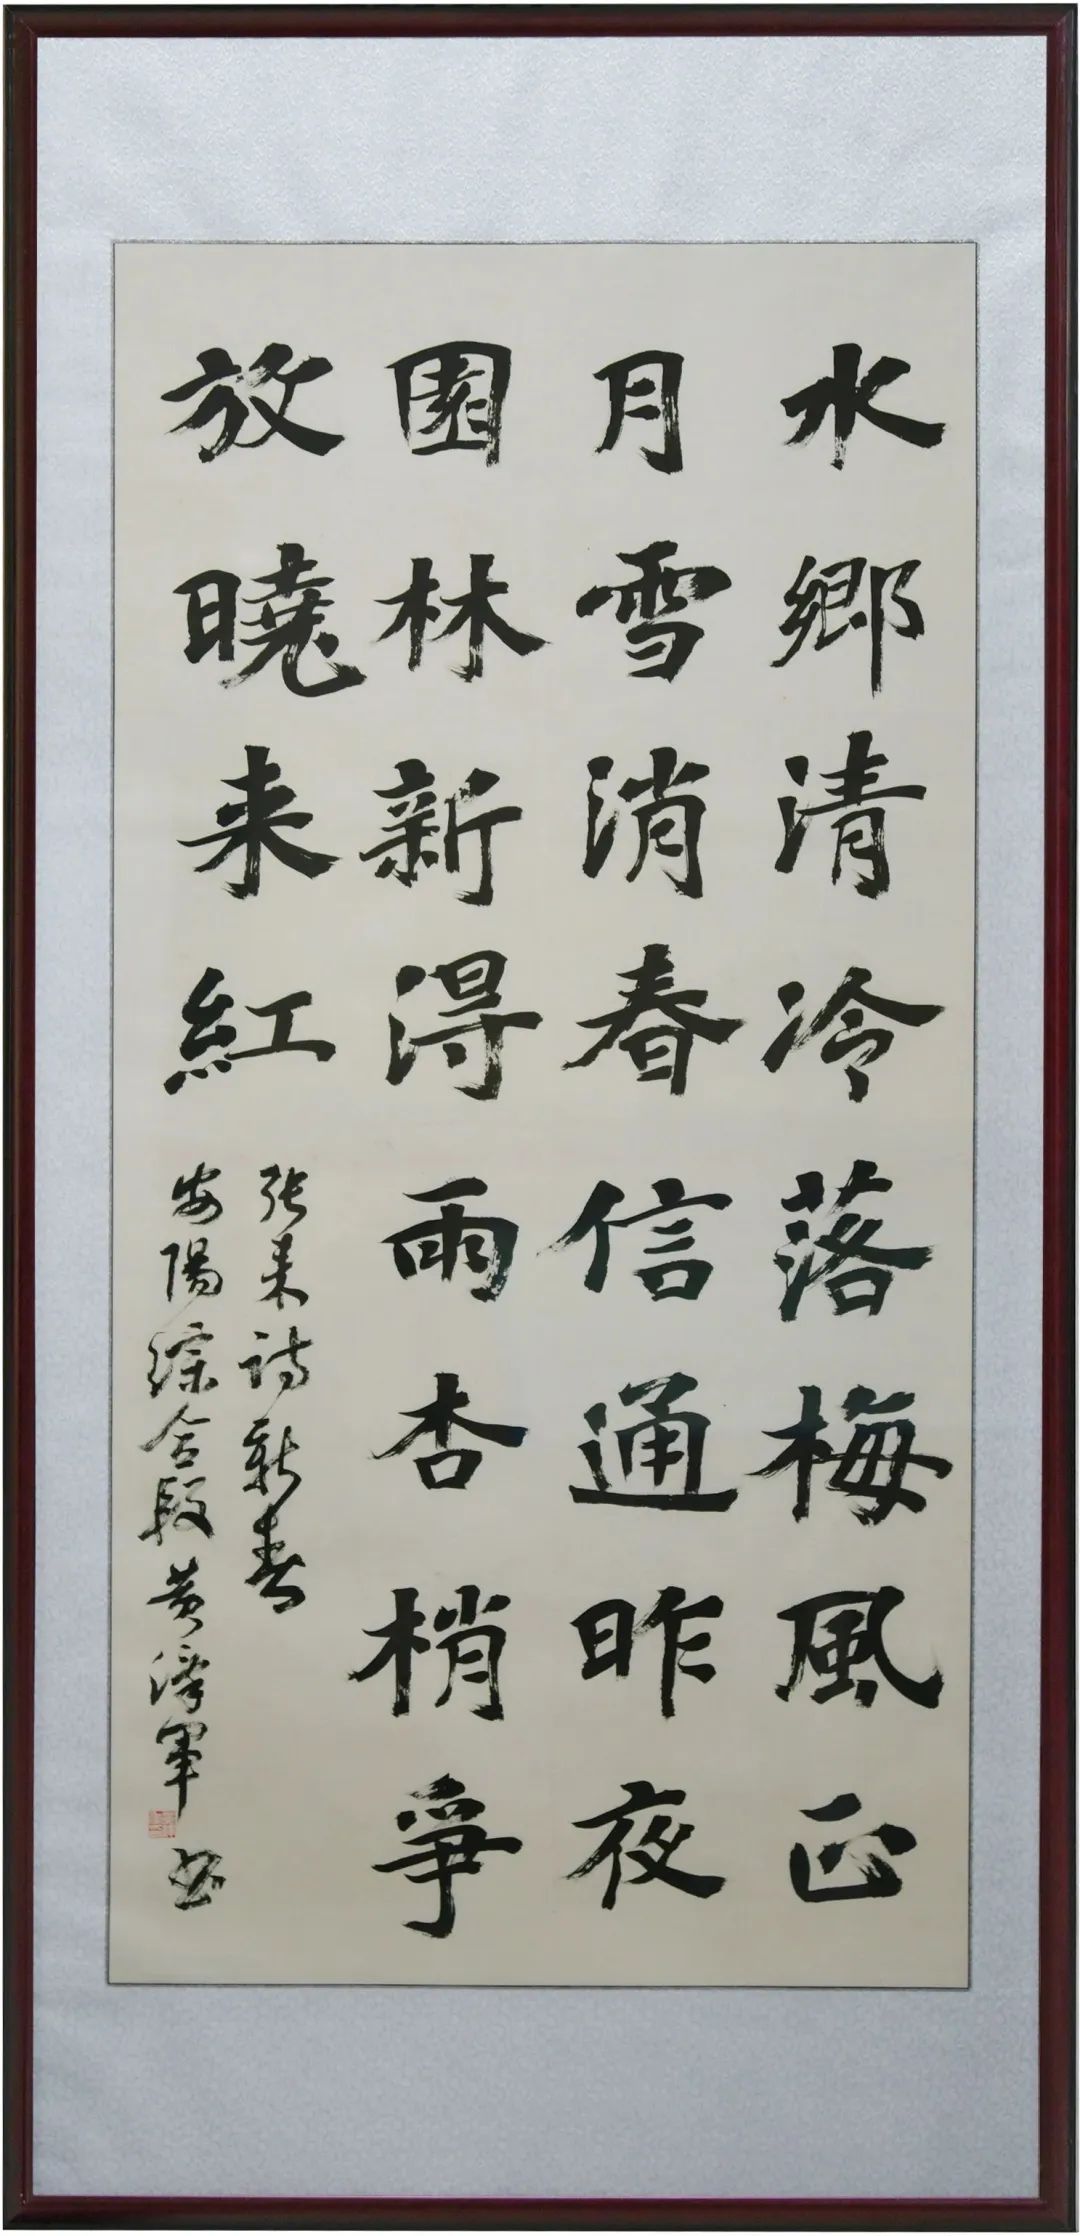 水鄉清冷落梅風正
月雪消春信通昨夜
園林新得雨杏梢爭
放曉来紅
张耒诗新春
安陽综合段黄泽军书